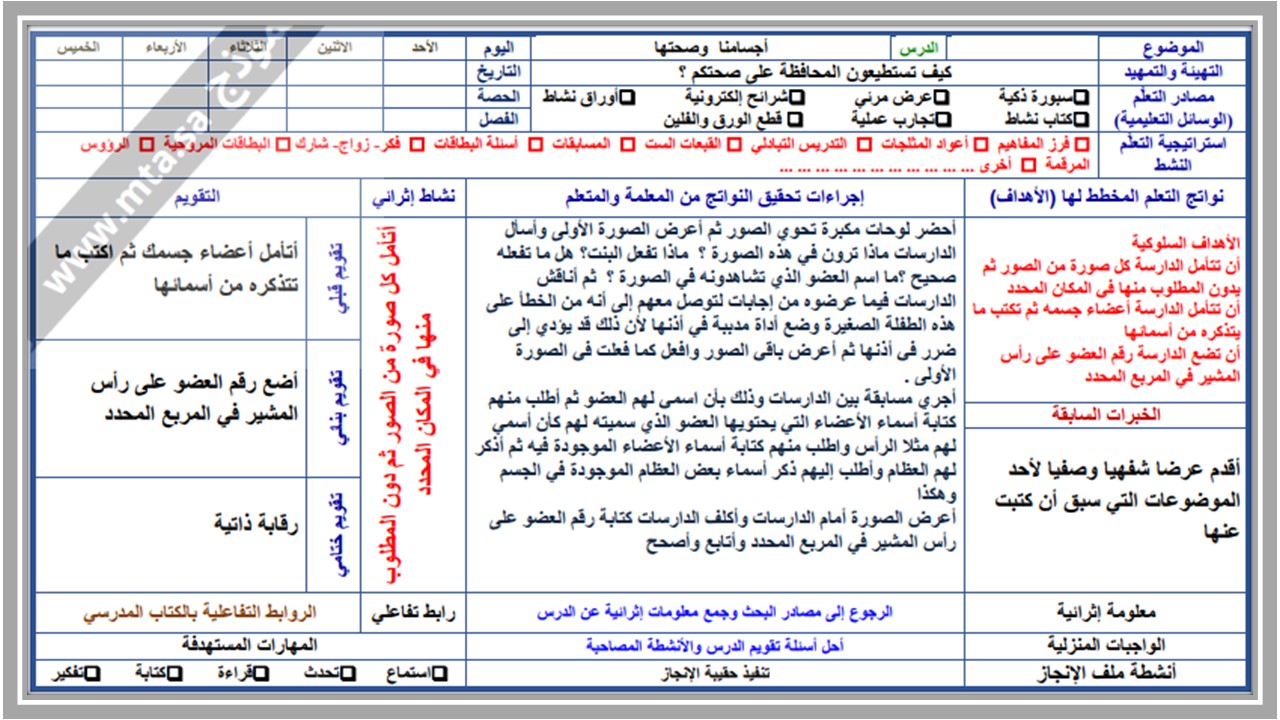 الموضوع
الدرس
أجسامنا وصحتها
اليوم
الأحد
الاثنين
الثلاثاء
الأربعاء
الخميس
التهيئة والتمهيد
كيف تستطيعون المحافظة على صحتكم ؟
التاريخ
مصادر التعلّم
(الوسائل التعليمية)
سبورة ذكية
عرض مرئي
شرائح إلكترونية
أوراق نشاط
الحصة
كتاب نشاط
تجارب عملية
قطع الورق والفلين
الفصل
استراتيجية التعلّم
النشط
فرز المفاهيم
أعواد المثلجات
التدريس التبادلي
القبعات الست
المسابقات
أسئلة البطاقات
فكر- زواج- شارك
البطاقات المروحية
الرؤوس
المرقمة
أخرى ... ... ... ... ... ... ... ... ... ...
نواتج التعلم المخطط لها (الأهداف)
إجراءات تحقيق النواتج من المعلمة والمتعلم
نشاط إثرائي
التقويم
الأهداف السلوكية
أن تتأمل الدارسة كل صورة من الصور ثم
يدون المطلوب منها فى المكان المحدد
أن تتأمل الدارسة أعضاء جسمه ثم تكتب ما
يتذكره من أسمائها
أن تضع الدارسة رقم العضو على رأس
المشير في المربع المحدد
الخبرات السابقة
أقدم عرضا شفهيا وصفيا لأحد
الموضوعات التي سبق أن كتبت
عنها
أحضر لوحات مكبرة تحوي الصور ثم أعرض الصورة الأولى وأسأل
الدارسات ماذا ترون في هذه الصورة ؟ ماذا تفعل البنت؟ هل ما تفعله
صحيح ؟ما اسم العضو الذي تشاهدونه في الصورة ؟ ثم أناقش
الدارسات فيما عرضوه من إجابات لتوصل معهم إلى أنه من الخطأ على
هذه الطفلة الصغيرة وضع أداة مدببة في أذنها لأن ذلك قد يؤدي إلى
ضرر فى أذنها ثم أعرض باقى الصور وافعل كما فعلت فى الصورة
الأولى .
أجري مسابقة بين الدارسات وذلك بأن اسمى لهم العضو ثم أطلب منهم
كتابة أسماء الأعضاء التي يحتويها العضو الذي سميته لهم كأن أسمي
لهم مثلا الرأس واطلب منهم كتابة أسماء الأعضاء الموجودة فيه ثم أذكر
لهم العظام وأطلب إليهم ذكر أسماء بعض العظام الموجودة في الجسم
وهكذا
أعرض الصورة أمام الدارسات وأكلف الدارسات كتابة رقم العضو على
رأس المشير في المربع المحدد وأتابع وأصحح
أتأمل كل صورة من الصور ثم دون المطلوب
منها في المكان المحدد
تقويم قبلي
أتأمل أعضاء جسمك ثم اكتب ما
تتذكره من أسمائها
تقويم بنائي
أضع رقم العضو على رأس
المشير في المربع المحدد
تقويم ختامي
رقابة ذاتية
معلومة إثرائية
الرجوع إلى مصادر البحث وجمع معلومات إثرائية عن الدرس
رابط تفاعلي
الروابط التفاعلية بالكتاب المدرسي
الواجبات المنزلية
أحل أسئلة تقويم الدرس والأنشطة المصاحبة
المهارات المستهدفة
أنشطة ملف الإنجاز
تنفيذ حقيبة الإنجاز
استماع
تحدث
قراءة
كتابة
تفكير
نموذج www.mta.sa